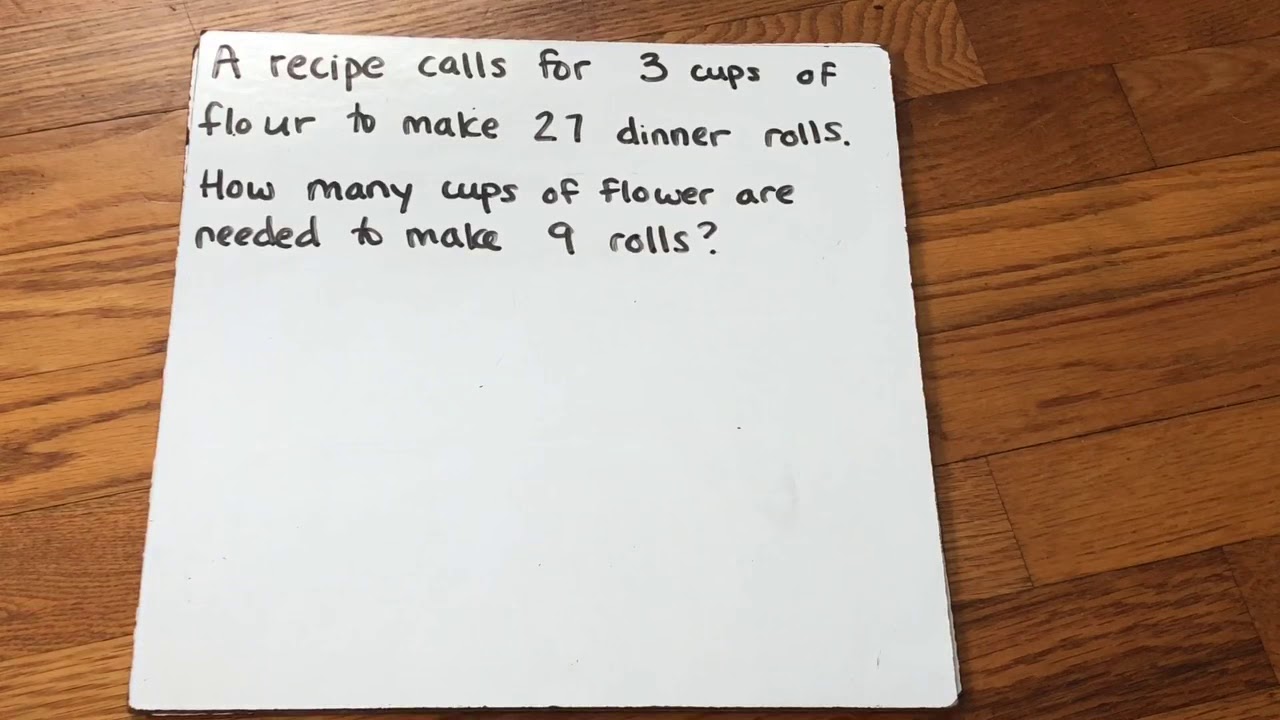 A recipe calls for 3 cups of
flour to make 27 dinner rolls.
How many cups of flower are
needed to make 9 rolls?